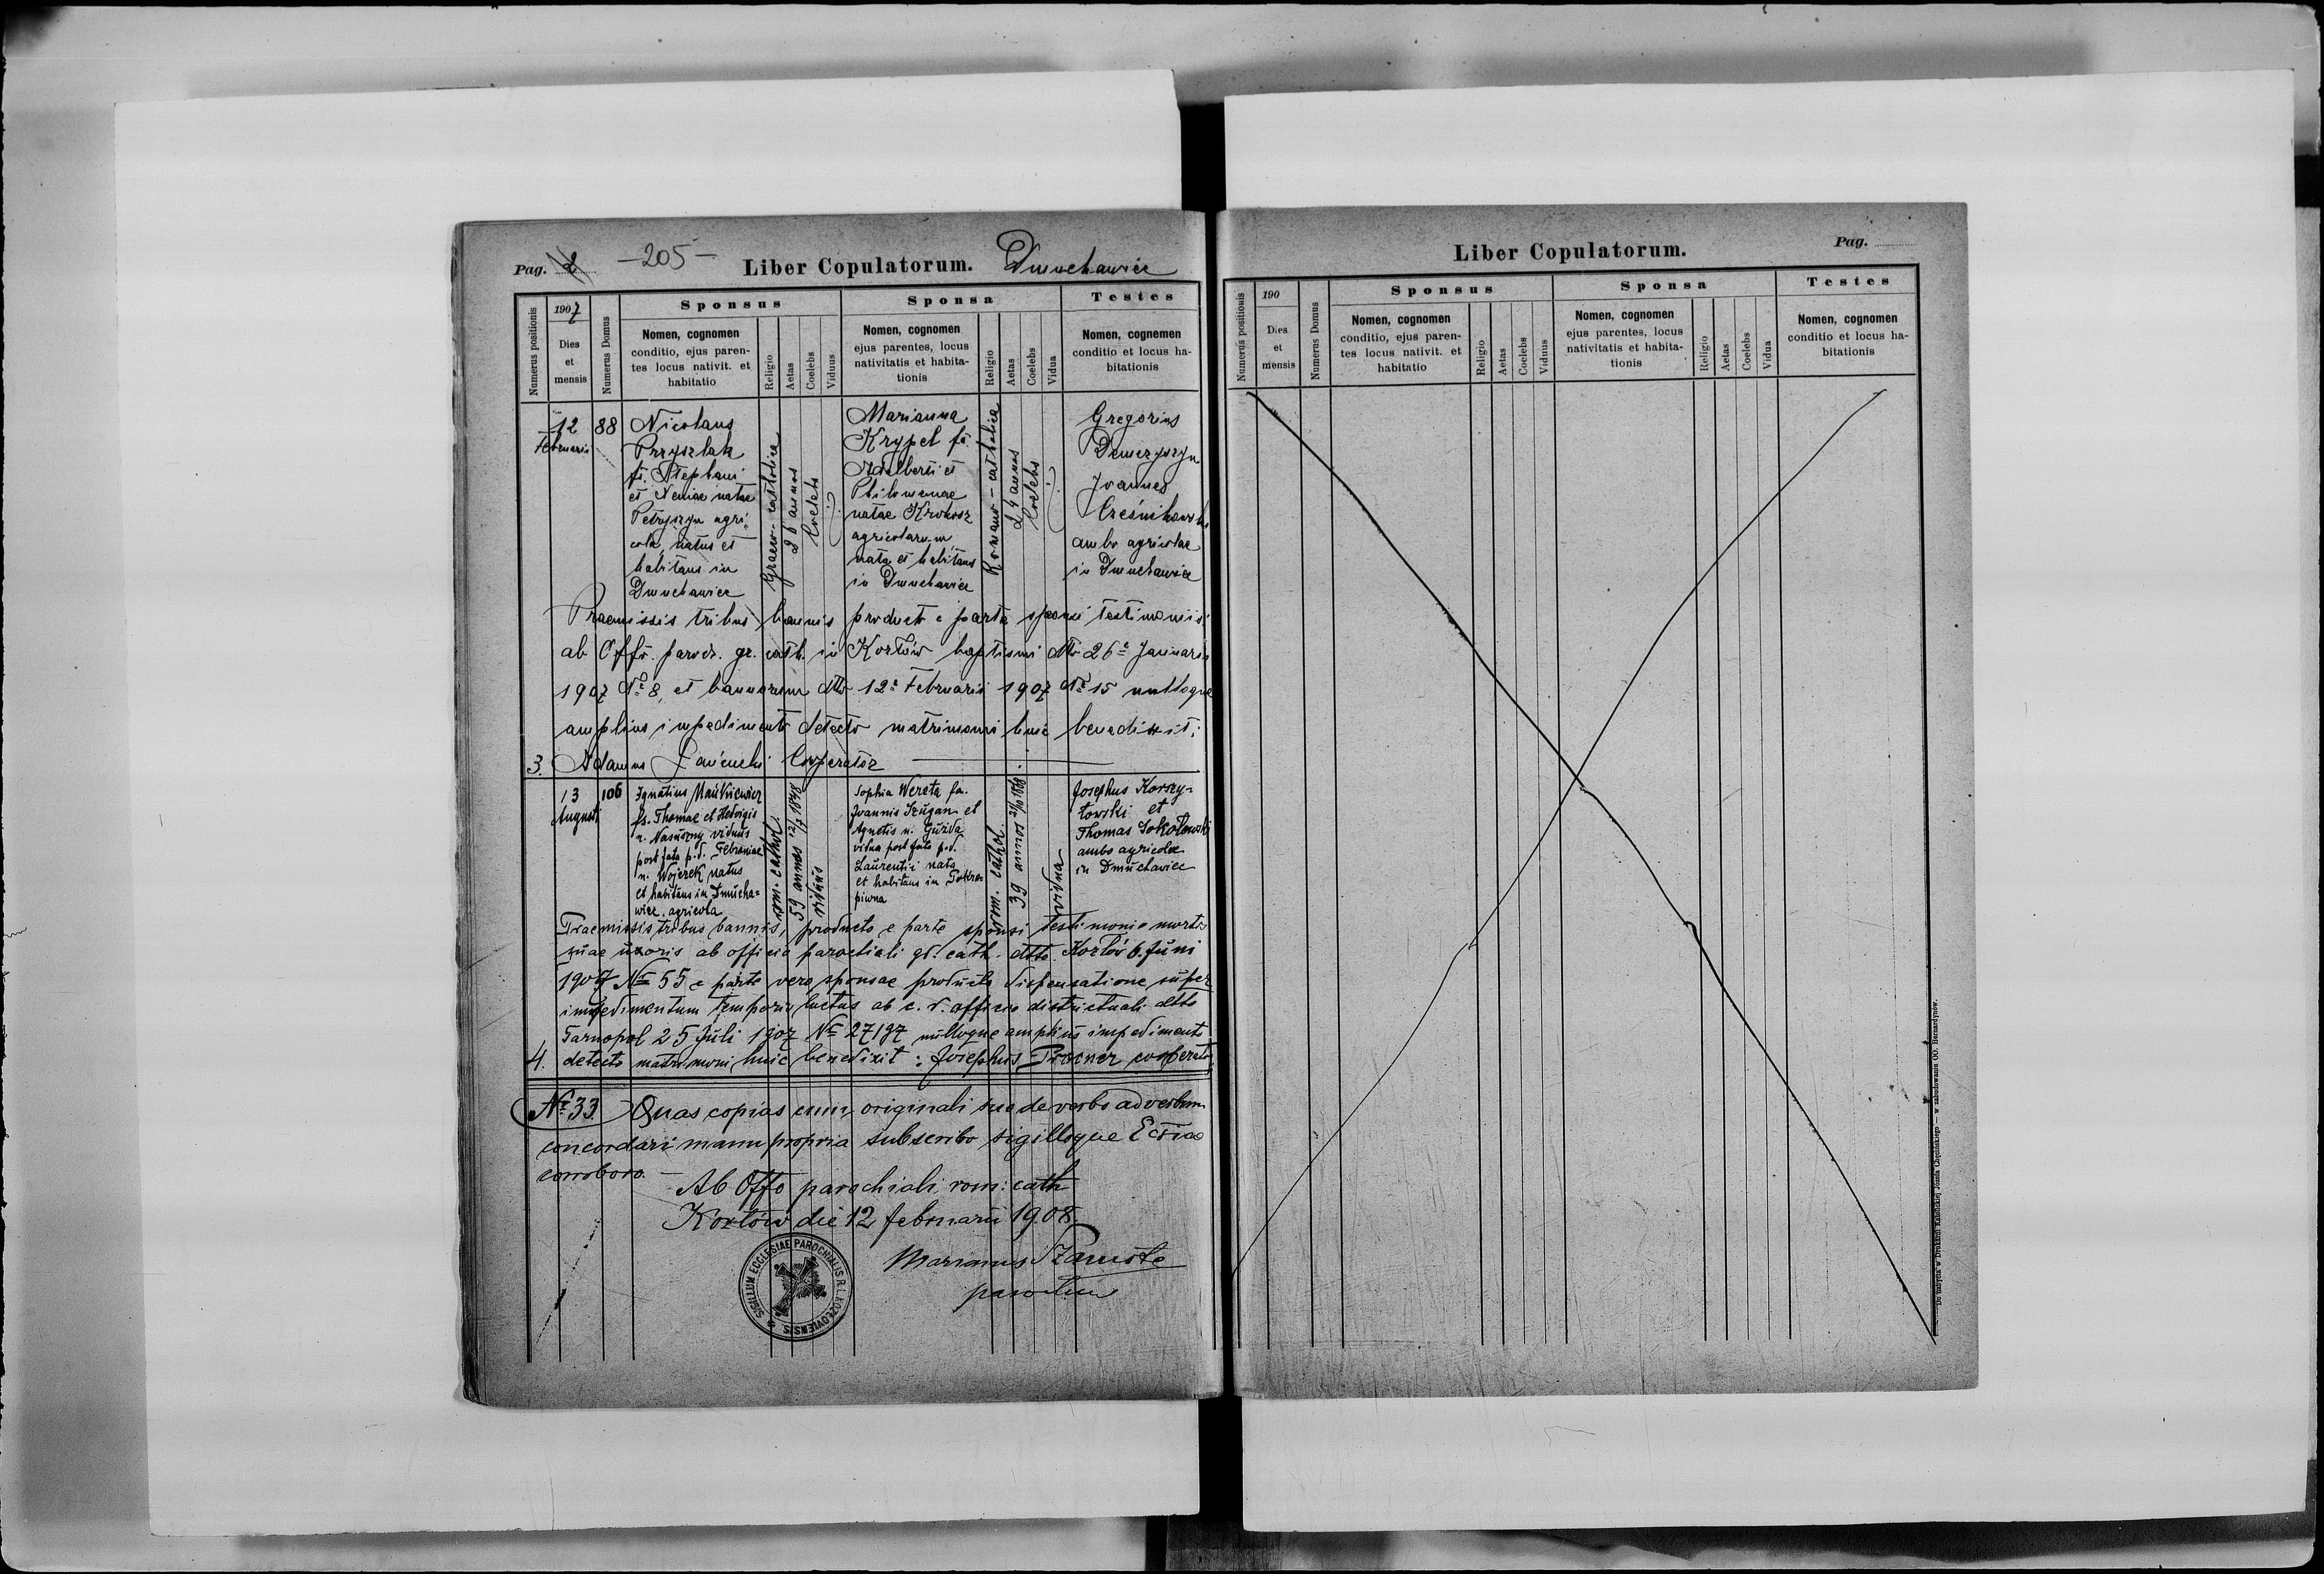 Pag. 2
- 205 -
Liber Copulatorum.
Dmuchawiec
Numerus positionis
1907
Dies
et
mensis
Numerus Domus
Sponsus
Nomen, cognomen
conditio, ejus paren-
tes locus nativit. et
habitatio
Religio
Aetas
Coelebs
Viduus
Sponsa
Nomen, cognomen
ejus parentes, locus
nativitatis et habita-
tionis
Religio
Aetas
Coelebs
Vidua
Testes
Nomen, cognemen
conditio et locus ha-
bitationis
12
Februarii
88
Nicolaus
Przyszlak
fs. Stephani
et Neniae natae
Petryszyn agri-
cola, natus et
habitans in
Dmuchawiec
Graeco-catholica
26 annos
Coelebs
Marianna
Krypel fa
Adalberti et
Philomenae
natae Krokosz
agricolarum
nata et habitans
in Dmuchawiec
Romano-catholica
24 annos
Coelebs
Gregorius
Joannes
ambo agricolae
in Dmuchawiec
Praemissis tribus bannis producto e parte sponsi testimoniis
ab Offo. paroch. gr. cath. in Kozłów baptismi dtto 26a Januarii
1907 No 8, et bannorum dtto 12a Februarii 1907 No 15 nulloque
amplius impedimento detecto matrimonii huic benedixit:
3. Adamus Cooperator
13
Augusti
106
Ignatius
fs. Thomae et Hedvigis
n. viduus
post fata p.d.
n. Wojczek natus
et habitans in Dmucha=
wiec agricola
rom. cathol.
59 annos 12/7 1848
viduus
Sophia Wereta fa.
Joannis et
Agnetis n. Guzda
vidua post fata p.d.
Laurentii nata
et habitans in Pokro=
piwna
rom. cathol.
39 annos
vidua
Josephus Korzy-
towski et
Thomas Sokołowski
ambo agricolae
in Dmuchawiec
Praemissis tribus bannis, producto e parte sponsi testimonio mortis
suae uxoris ab officio parochiali gr. cath. dtto Kozłów 6. Juni
1907 No 55 e parte vero sponsae producta dispensatione super
impedimentum temporis luctus ab c. r. officio districtuali dtto
Tarnopol 25 Juli 1907 No 27197 nulloque amplius impedimento
4. detecto matrimoni huic benedixit: Josephus Procner cooperator
No 33. Quas copias cum originali suo de verbo ad verbum
concordari manu propria subscribo sigilloque Ecclae
corroboro. —
Ab Offo parochiali rom: cath
Kozłów die 12 februarii 1908.
SIGILLUM ECCLESIAE PAROCHIALIS R. L. KOZŁOVIENSIS
Marianus
parochus
Liber Copulatorum.
Pag.
Numerus positionis
190
Dies
et
mensis
Numerus Domus
Sponsus
Nomen, cognomen
conditio, ejus paren-
tes locus nativit. et
habitatio
Religio
Aetas
Coelebs
Viduus
Sponsa
Nomen, cognomen
ejus parentes, locus
nativitatis et habita-
tionis
Religio
Aetas
Coelebs
Vidua
Testes
Nomen, cognomen
conditio et locus ha-
bitationis
Do nabycia w Drukarni Katolickiej Józefa Chęcińskiego — w zabudowaniu OO. Bernardynów.